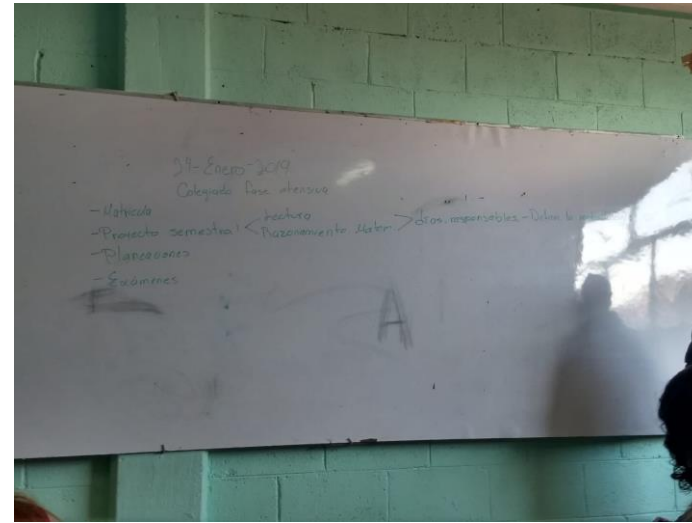 Enero-2019
Colegiado fase intensiva
-Matrícula
-Proyecto semestral < Lectura
Razonamiento Matem. > días, responsables.-
-Planeaciones
-Exámenes
A